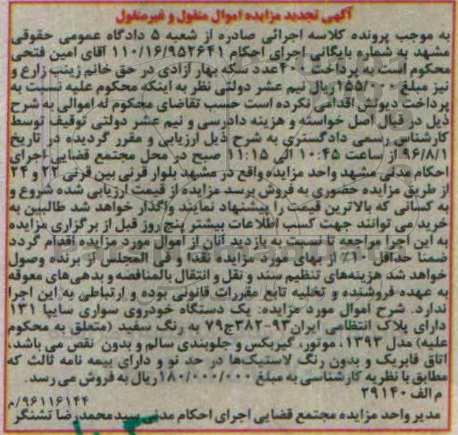 آگهی تجدید مزایده اموال منقول و غیرمنقول
به موجب پرونده کلاسه اجرائی صادره از شعبه ۵ دادگاه عمومی حقوقی
مشهد به شماره بایگانی اجرای احکام ۱۱۰/۱۶/۹۵۲۶۴۱ آقای امین فتحی
محکوم است به پرداخت ۴۰۰عدد سکه بهار آزادی در حق خانم زینب زارع و
نیز مبلغ ۱۵۵/۰۰۰ریال نیم عشر دولتی نظر به اینکه محکوم علیه نسبت به
پرداخت دیونش اقدامی نکرده است حسب تقاضای محکوم له اموالی به شرح
ذیل در قبال اصل خواسته و هزینه دادرسی و نیم عشر دولتی توقیف توسط
کارشناس رسمی دادگستری به شرح ذیل ارزیابی و مقرر گردیده در تاریخ
۹۶/۸/۱ از ساعت ۱۰:۴۵ الی ۱۱:۱۵ صبح در محل مجتمع قضایی اجرای
احکام مدنی مشهد واحد مزایده واقع در مشهد بلوار قرنی بین قرنی ۲۲ و ۲۴
از طریق مزایده حضوری به فروش برسد مزایده از قیمت ارزیابی شده شروع و
به کسانی که بالاترین قیمت را پیشنهاد نمایند واگذار خواهد شد طالبین به
خرید می توانند جهت کسب اطلاعات بیشتر پنج روز قبل از برگزاری مزایده
به این اجرا مراجعه تا نسبت به بازدید آنان از اموال مورد مزایده اقدام گردد
ضمنا حداقل ۱۰٪ از بهای مورد مزایده نقدا و فی المجلس از برنده وصول
خواهد شد هزینه‌های تنظیم سند و نقل و انتقال بالمناصفه و بدهی‌های معوقه
به عهده فروشنده و تخلیه تابع مقررات قانونی بوده و ارتباطی به این اجرا
ندارد. شرح اموال مورد مزایده: یک دستگاه خودروی سواری سایپا ۱۳۱
دارای پلاک انتظامی ایران۹۳-۳۸۲ج۷۹ به رنگ سفید (متعلق به محکوم
علیه) مدل ۱۳۹۳، موتور، گیربکس و جلوبندی سالم و بدون نقص می باشد،
اتاق فابریک و بدون رنگ لاستیک‌ها در حد نو و دارای بیمه نامه ثالث که
مطابق با نظریه کارشناسی به مبلغ ۱۸۰/۰۰۰/۰۰۰ریال به فروش می رسد.
م الف ۲۹۱۴۰
۹۶۱۱۶۱۴۴/م
مدیر واحد مزایده مجتمع قضایی اجرای احکام مدنی سیدمحمدرضا تشنگر